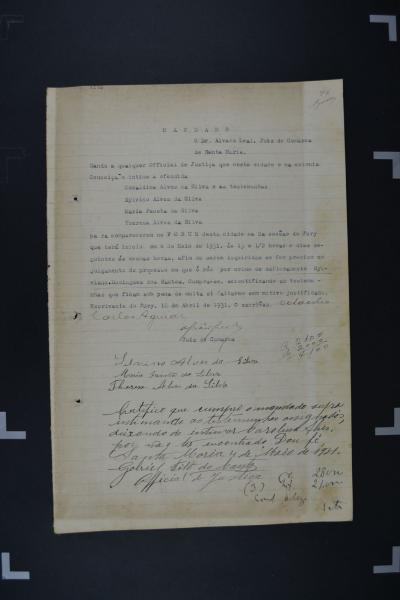 M A N D A D O
O Dr. Alvaro Leal, Juiz de Comarca
de Santa Maria.
Mando a qualquer Official de Justiça que nesta cidade e na colonia
Conceição intime a ofendida
Geraldina Alves da Silva e as testemunhas
Sylvino Alves da Silva
Maria Fausta da Silva
Thereza Alves da Silva
para comparecerem no F O R U M desta cidade na 2a sessão do Jury
que terá inicio em 4 de Maio de 1931, ás 13 e 1/2 horas e dias se-
guintes ás mesmas horas, afim de serem inquiridas se for preciso no
julgamento do processo em que é réu por crime de defloramento Syl-
vians Domingues dos Santos. Cumpra-se, scientificando as testemu-
nhas que ficam sob pena de multa si faltarem sem motivo justificado.
Escrivania do Jury, 16 de Abril de 1931. O escrivão,
Carlos Aguiar
Juiz de Comarca
Silvino Alves da Silva
Maria Fausta da Silva
Thereza Alves da Silva
Certifico que cumpri o mandado supra
intimando as testemunhas assignados,
deixando de intimar Carolina Alves,
por não ter encontrado. Dou fé
Santa Maria 4 de Maio de 1931.
Gabriel
Official de Justiça
(3)